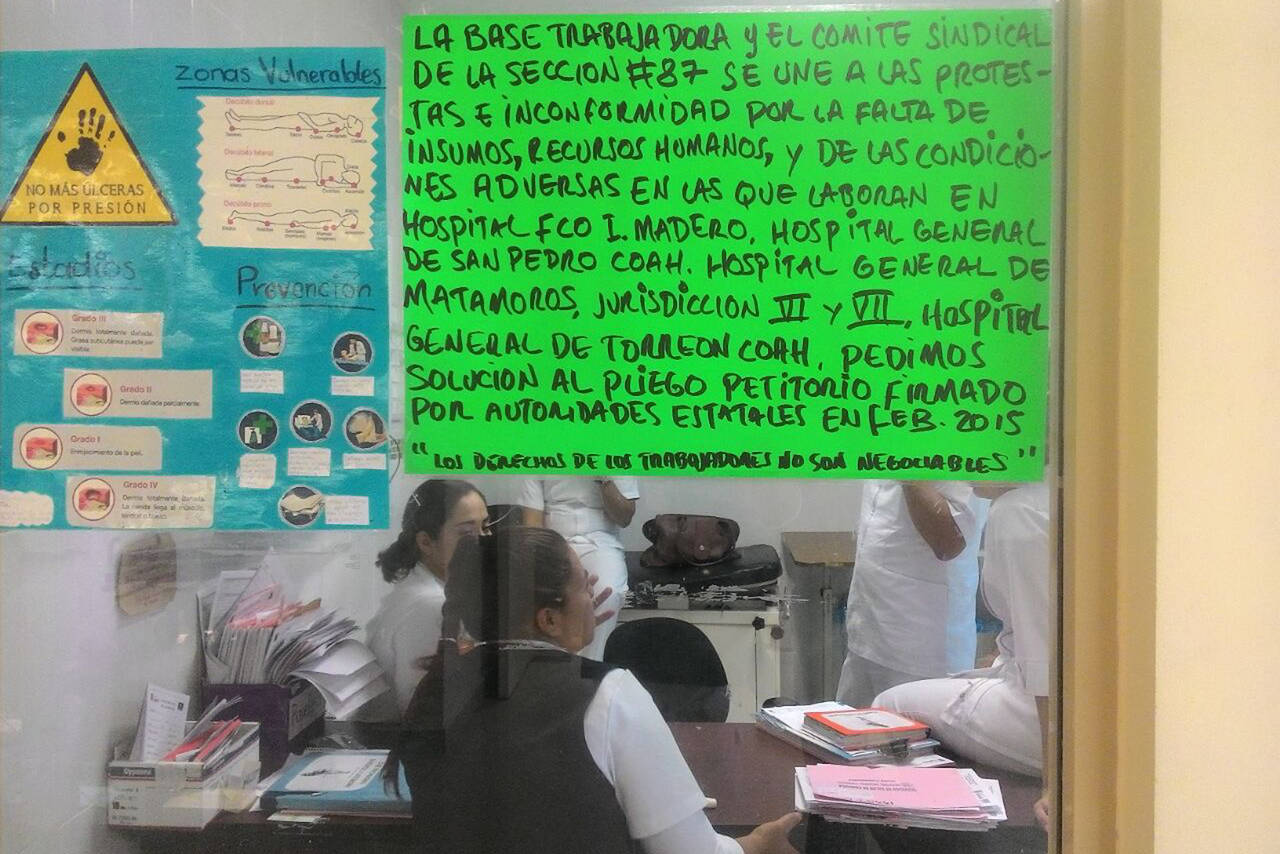 LA BASE TRABAJADORA Y EL COMITE SINDICAL
DE LA SECCION #87 SE UNE A LAS PROTES-
TAS E INCONFORMIDAD POR LA FALTA DE
INSUMOS, RECURSOS HUMANOS, Y DE LAS CONDICIO-
NES ADVERSAS EN LAS QUE LABORAN EN
HOSPITAL FCO I. MADERO, HOSPITAL GENERAL
DE SAN PEDRO COAH. HOSPITAL GENERAL DE
MATAMOROS, JURISDICCION VI Y VII, HOSPITAL
GENERAL DE TORREON COAH, PEDIMOS
SOLUCION AL PLIEGO PETITORIO FIRMADO
POR AUTORIDADES ESTATALES EN FEB. 2015
"LOS DERECHOS DE LOS TRABAJADORES NO SON NEGOCIABLES"
Zonas Vulnerables
NO MÁS ÚLCERAS
POR PRESIÓN
Decúbito dorsal
Decúbito lateral
Decúbito prono
Estadíos
Grado III
Dermis totalmente dañada.
Grasa subcutánea puede ser
visible.
Grado II
Dermis dañada parcialmente.
Grado I
Enrojecimiento de la piel.
Grado IV
Dermis totalmente dañada.
Prevención